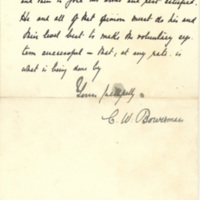 and ... is ... his ... and rest satisfied.
He and all of that opinion must do his and
their level best to make the voluntary sys
tem successful – that, at any rate, is
what is being done by
Yours faithfully
C. W. Bowerman